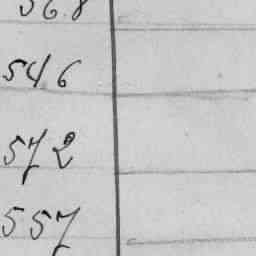 568
546
572
557